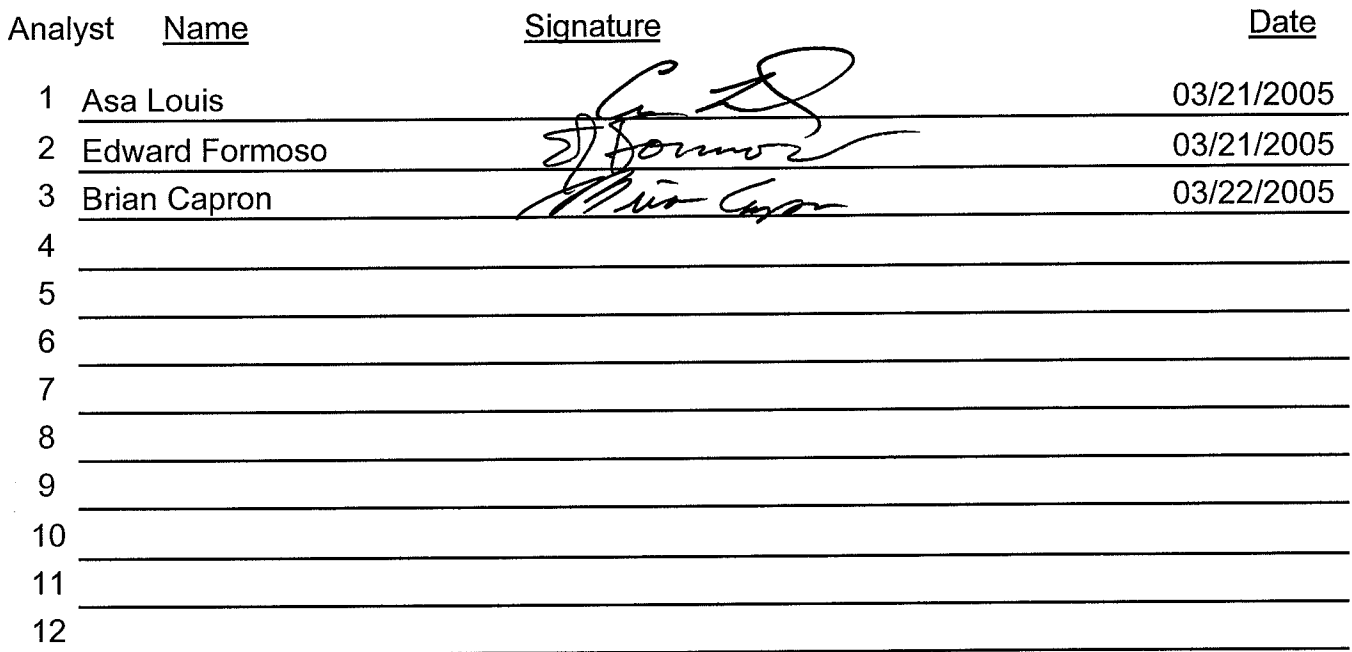 Analyst Name Signature Date
1 Asa Louis 03/21/2005
2 Edward Formoso 03/21/2005
3 Brian Capron Brian Capron 03/22/2005
4
5
6
7
8
9
10
11
12